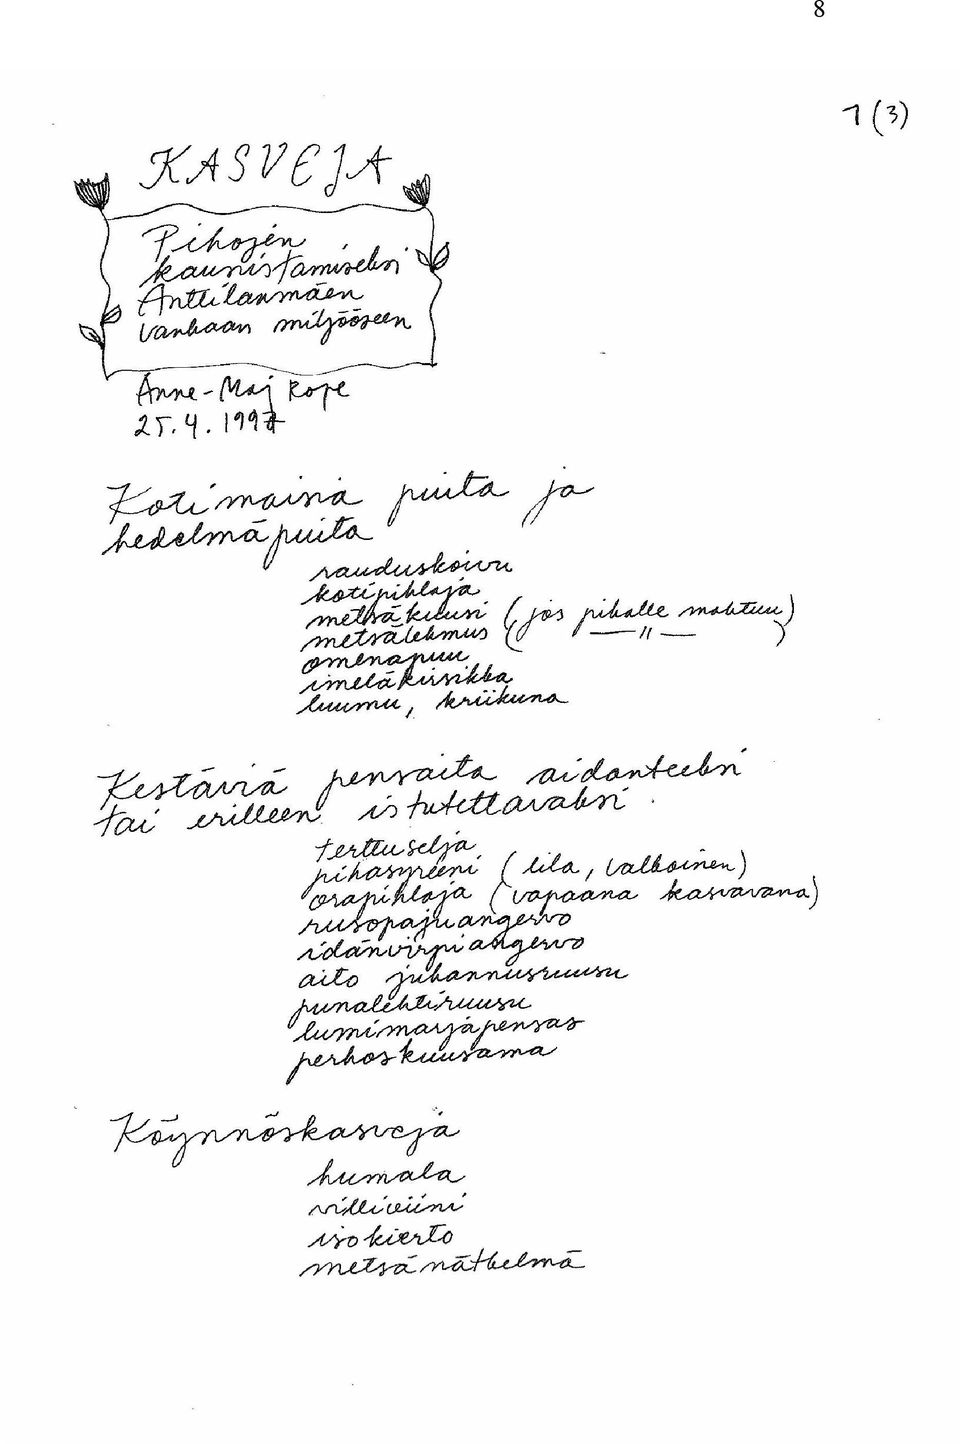 8
1(3)
KASVEJA
Pihojen
kaunistamiseksi
Anttilanmäen
vanhaan miljööseen
Anne-Maj Rope
25.4.1997
Kotimaisia puita ja
hedelmäpuita
rauduskoivu
kotipihlaja
metsäkuusi (jos pihalle mahtuu)
metsälehmus ( — " — )
omenapuu
imeläkirsikka
luumu, kriikuna
Kestäviä pensaita aidanteeksi
tai erilleen istutettavaksi.
terttuselja
pihasyreeni (lila, valkoinen)
orapihlaja (vapaana kasvavana)
rusopajuangervo
idänvirpiangervo
aito juhannusruusu
punalehtiruusu
lumimarjapensas
perhoskuusama
Köynnöskasveja
humala
villiviini
isokierto
metsänätkelmä